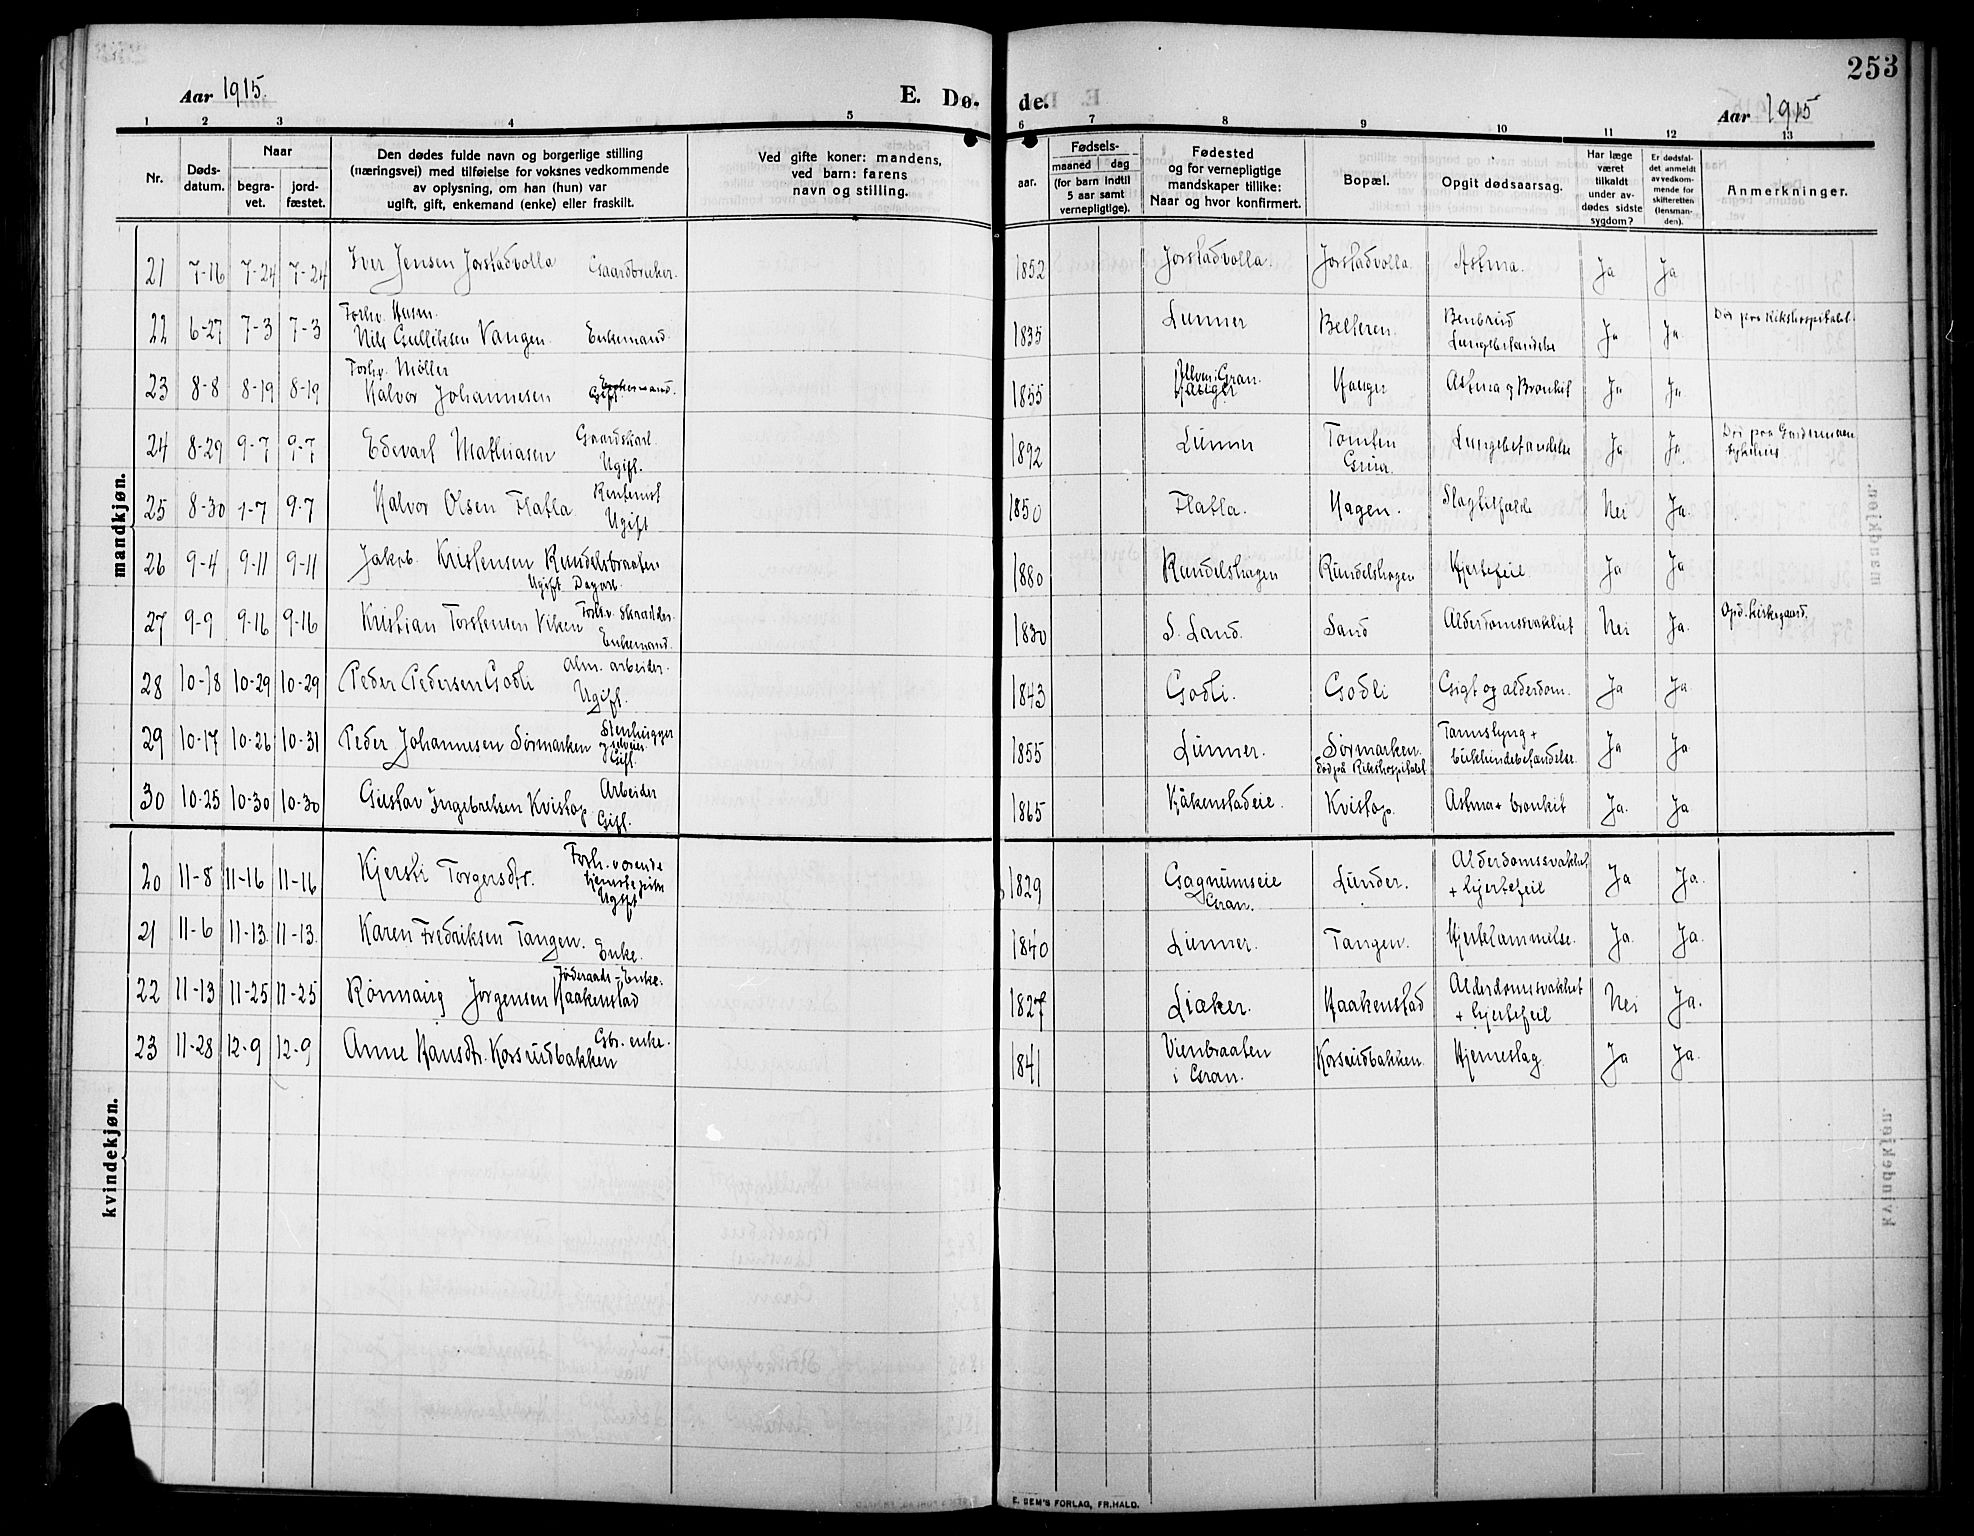 253
Aar 1915.
E. Dø- de.
Aar 1915
1 2 3 4 5 6 7 8 9 10 11 12 13
Nr.
Døds-
datum.
Naar
begra-
vet.
jord-
fæstet.
Den dødes fulde navn og borgerlige stilling
(næringsvei) med tilføielse for voksnes vedkommende
av oplysning, om han (hun) var
ugift, gift, enkemand (enke) eller fraskilt.
Ved gifte koner: mandens,
ved barn: farens
navn og stilling.
aar.
Fødsels-
maaned dag
(for barn indtil
5 aar samt
vernepligtige).
Fødested
og for vernepligtige
mandskaper tillike:
Naar og hvor konfirmert.
Bopæl.
Opgit dødsaarsag.
Har læge
været
tilkaldt
under av-
dødes sidste
sygdom?
Er dødsfal-
det anmeldt
av vedkom-
mende for
skifteretten
(lensman-
den).
Anmerkninger.
mandkjøn.
21 7-16 7-24 7-24 Iver Jensen Jorstadvolla Gaardbruker. 1852 Jorstadvolla. Jorstadvolla. Astma. Ja Ja
Forhv. Husm.
22 6-27 7-3 7-3 Nils Gulliksen Vangen. Enkemand. 1835 Lunner Belteren. Benbrud Lungebetændelse Ja Ja. Død paa Rikshospitalet.
Forhv. Møller
23 8-8 8-19 8-19 Halvor Johannesen Enkemand. Gift 1855 i Gran. Hanger Astma og Bronkit Ja Ja
24 8-29 9-7 9-7 Edevart Mathiasen Gaardskarl. Ugift. 1892 Lunner Tomten Grua. Lungebetændelse Ja Ja. Død paa Gardermoen sykehus
25 8-30 9-7 9-7 Halvor Olsen Flatla Rentenist Ugift 1850 Flatla. Hagen. Slagtilfælde Nei Ja.
26 9-4 9-11 9-11 Jakob Kristensen Rundelsbraaten
Ugift Dagarb. 1880 Rundelshagen Rundelshagen Hjertefeil. Ja Ja
27 9-9 9-16 9-16 Kristian Torstensen Viken Forhv. Skrædder. Enkemand. 1830 S. Land. Sand Alderdomssvakhet Nei Ja. Opd. kirkegaard.
28 10-18 10-29 10-29 Peder Pedersen Godli Alm. arbeider. Ugift. 1843 Godli. Godli Gigt og alderdom. Ja Ja.
29 10-17 10-26 10-31 Peder Johannesen Sørmarken Stenhugger og selveier Gift. 1855 Lunner. Sørmarken. død på Rikshospitalet Ja Ja
30 10-25 10-30 10-30 Gustav Ingebretsen Kvistop Arbeider Gift. 1865 Håkenstadeie. Kvistop. Astma + bronkit Ja. Ja
kvindekjøn.
20 11-8 11-16 11-16 Kjersti Torgersdtr. Forh. værende Ugift 1829 Gagnumseie Gran. Lunder. Alderdomssvakhet + hjertefeil Ja Ja.
21 11-6 11-13 11-13. Karen Fredriksen Tangen. Enke. 1840 Lunner. Tangen. Hjertelammelse. Ja. Ja.
22 11-13 11-25 11-25 Rønnaug Jorgensen Haakenstad Føderaads-Enke. 1827 Liaker. Haakenstad Alderdomssvakhet + hjertefeil Nei Ja.
23 11-28 12-9 12-9 Anne Hansdtr. Korsrudbakken Gbr. enke. 1841 Vienbraaten i Gran. Korsrudbakken. Hjerneslag. Ja Ja.
E. SEM'S FORLAG, FR.HALD.